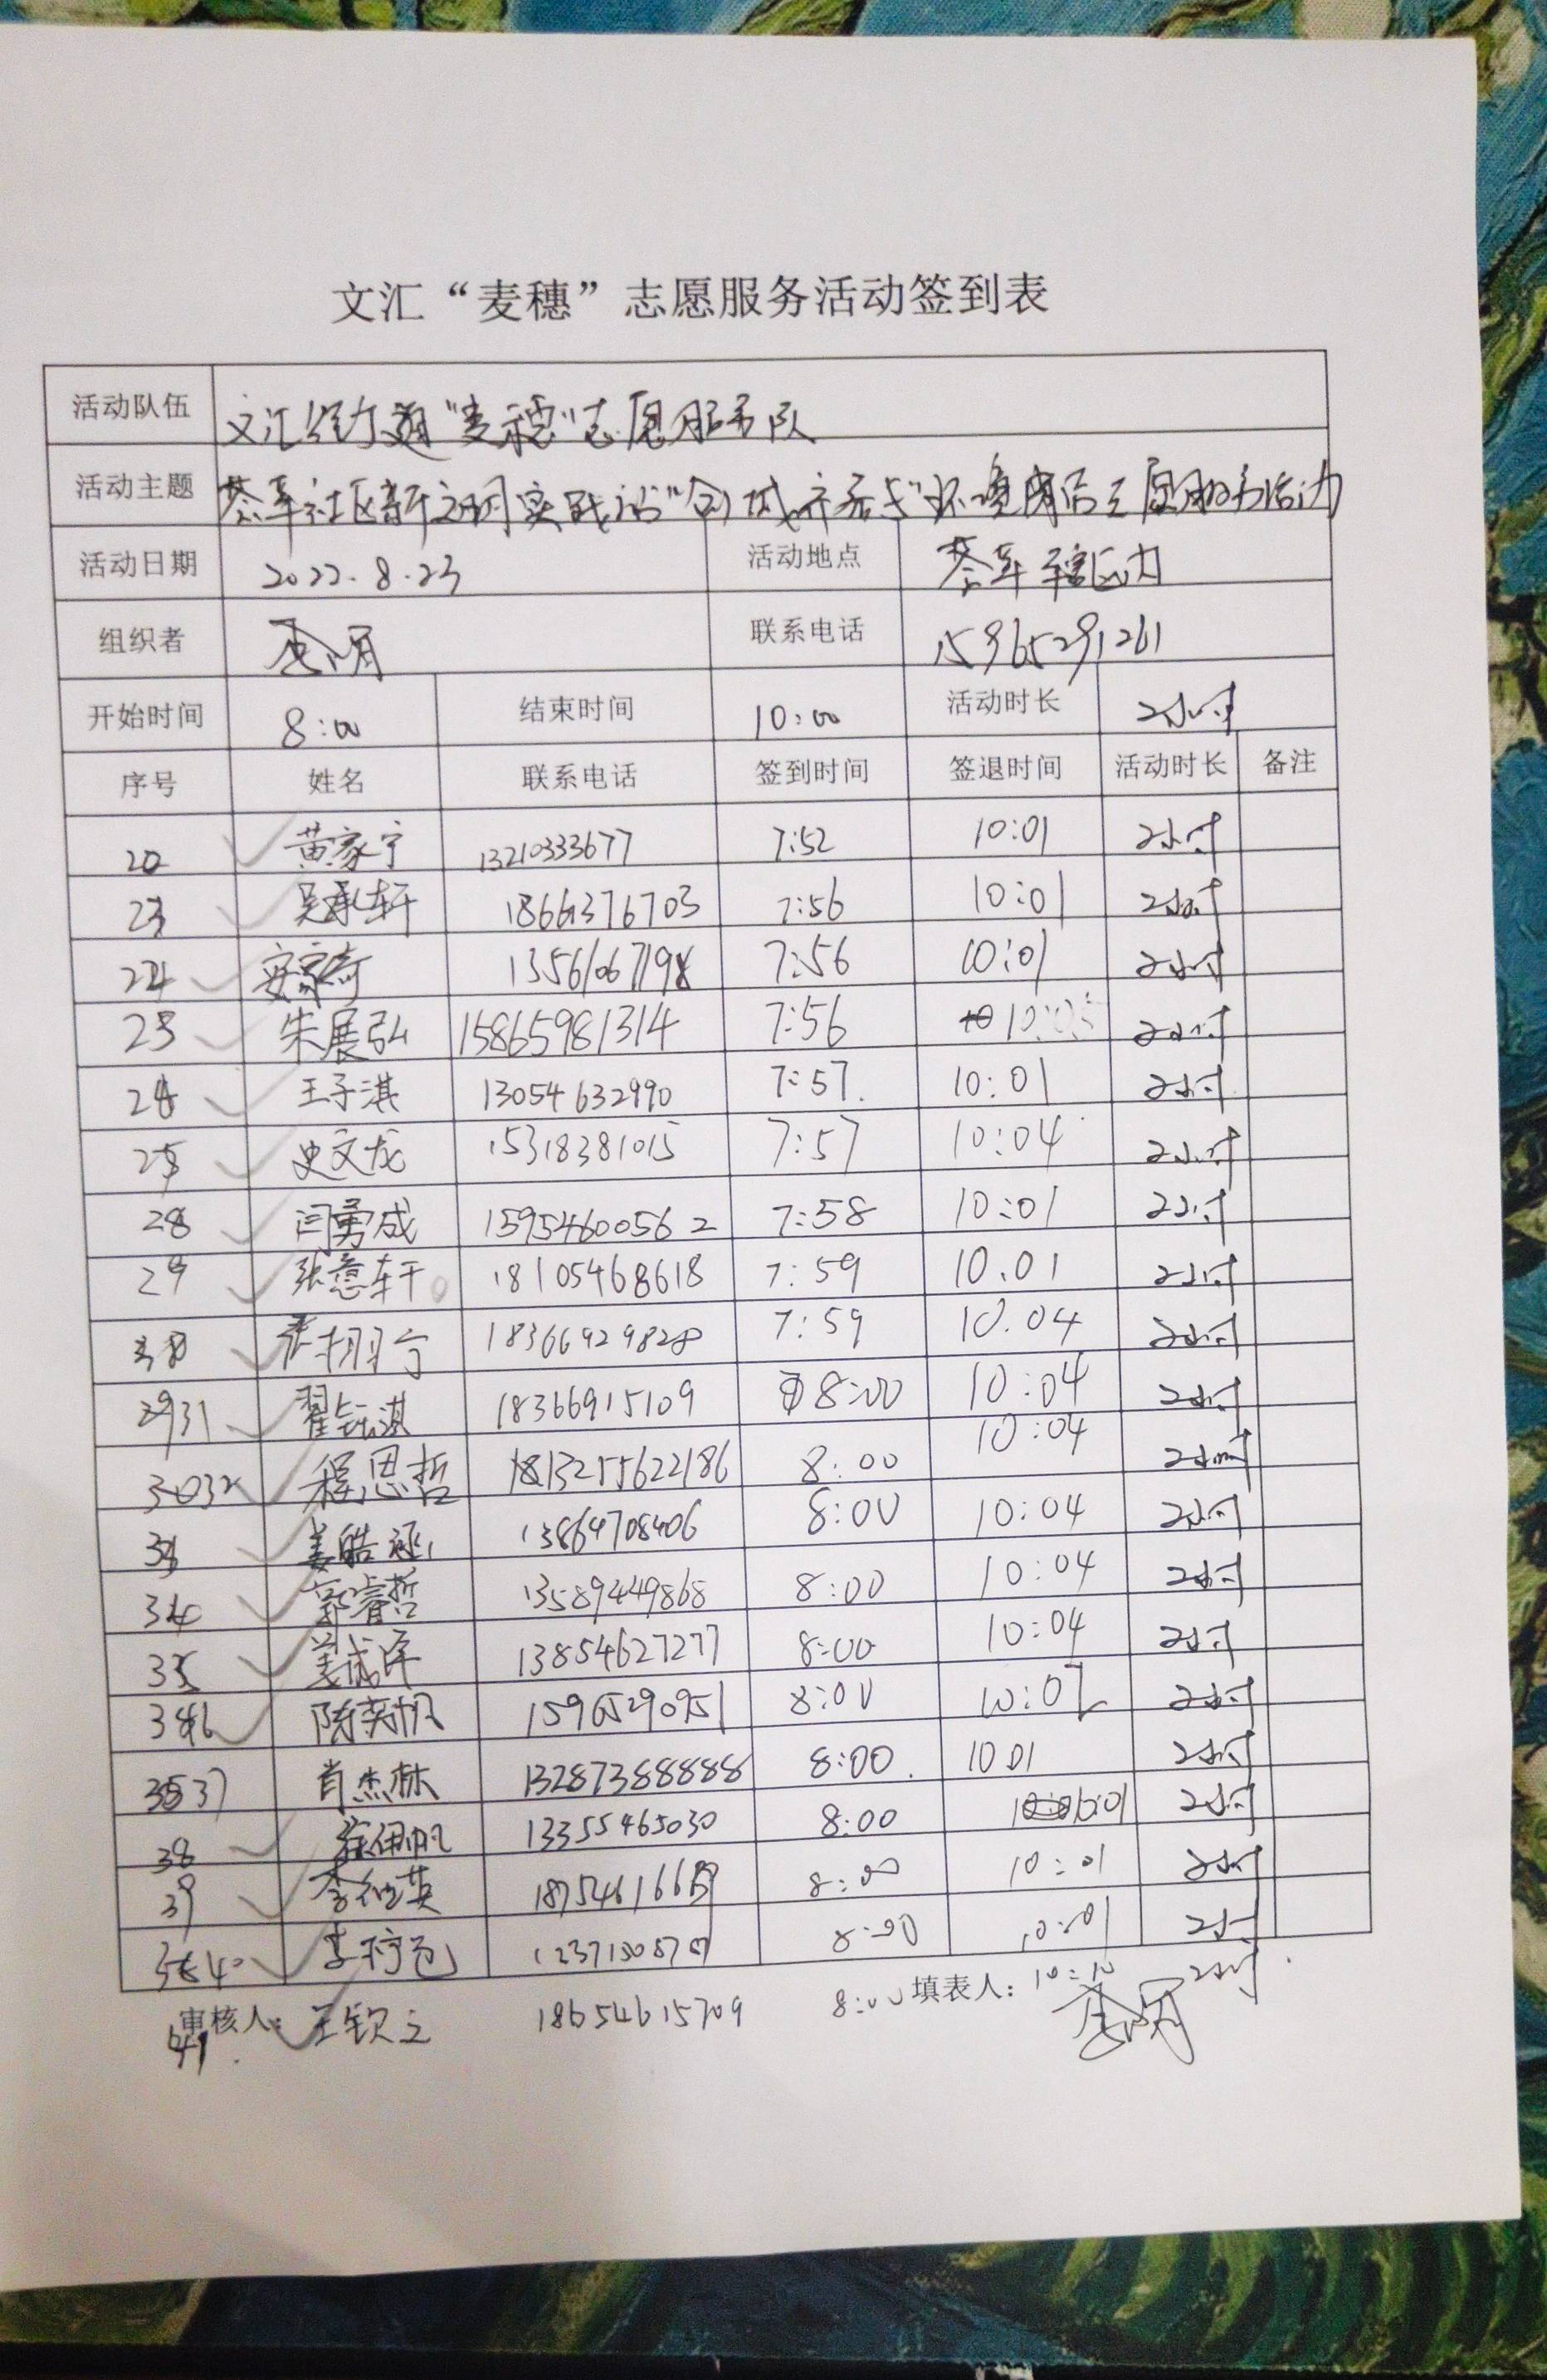 文汇“麦穗”志愿服务活动签到表
活动队伍 文汇街道“麦穗”志愿服务队
活动主题 社区新文明实践站“创城 环境 志愿服务活动
活动日期 2022.8.23 活动地点 辖区内
组织者 联系电话 15965291261
开始时间 8:00 结束时间 10:00 活动时长 2小时
序号 姓名 联系电话 签到时间 签退时间 活动时长 备注
黄家宁 13210333677 7:52 10:01 2小时
吴承轩 18661376703 7:56 10:01 2小时
安家奇 7:56 10:01 2小时
朱展弘 15865981314 7:56 2小时
王子淇 13054632990 7:57 10:01 2小时
史文龙 15318381015 7:57 10:04 2小时
28 闫勇成 15954600562 7:58 10:01 2小时
29 张意轩 18105468618 7:59 10.01 2小时
18366929828 7:59 10.04 2小时
31 翟钰淇 18366915109 8:00 10:04 2小时
32 程思哲 13255622186 8:00 10:04 2小时
姜皓 13864708406 8:00 10:04 2小时
34 郭睿哲 13589449868 8:00 10:04 2小时
35 姜成泽 13854627277 8:00 10:04 2小时
36 陈奕帆 15965290951 8:00 10:02 2小时
37 肖杰林 13287388888 8:00 10 01 2小时
38 13355465030 8:00 10:01 2小时
39 8:00 10:01 2小时
40 8:00 10:01 2小时
审核人: 填表人:
41 王钦立 18654615709 8:00 10:10 2小时